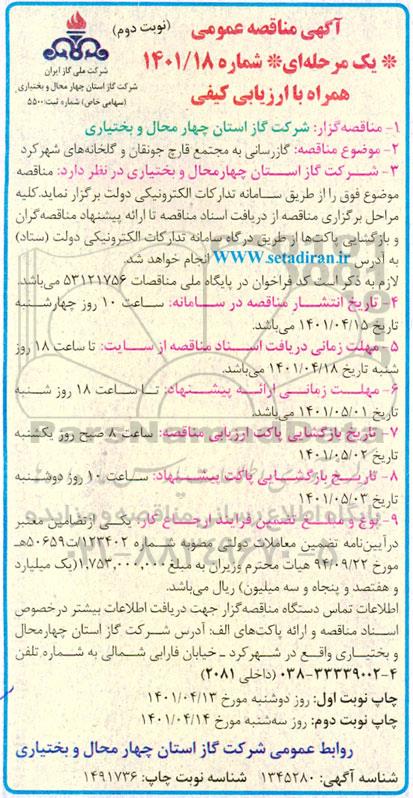 آگهی مناقصه عمومی (نوبت دوم)
* یک مرحله‌ای* شماره ۱۴۰۱/۱۸
همراه با ارزیابی کیفی
شرکت ملی گاز ایران
شرکت گاز استان چهار محال و بختیاری
(سهامی خاص) شماره ثبت: ۵۵۰۰
۱- مناقصه‌گزار: شرکت گاز استان چهار محال و بختیاری
۲- موضوع مناقصه: گازرسانی به مجتمع قارچ جونقان و گلخانه‌های شهرکرد
۳- شرکت گاز استان چهارمحال و بختیاری در نظر دارد: مناقصه
موضوع فوق را از طریق سامانه تدارکات الکترونیکی دولت برگزار نماید.کلیه
مراحل برگزاری مناقصه از دریافت اسناد مناقصه تا ارائه پیشنهاد مناقصه‌گران
و بازگشایی پاکت‌ها از طریق درگاه سامانه تدارکات الکترونیکی دولت (ستاد)
به آدرس www.setadiran.ir انجام خواهد شد.
لازم به ذکر است کد فراخوان در پایگاه ملی مناقصات ۵۳۱۲۱۷۵۶ می‌باشد.
۴- تاریخ انتشار مناقصه در سامانه: ساعت ۱۰ روز چهارشنبه
تاریخ ۱۴۰۱/۰۴/۱۵ می‌باشد.
۵- مهلت زمانی دریافت اسناد مناقصه از سایت: تا ساعت ۱۸ روز
شنبه تاریخ ۱۴۰۱/۰۴/۱۸ می‌باشد.
۶- مهلت زمانی ارائه پیشنهاد: تا ساعت ۱۸ روز شنبه
تاریخ ۱۴۰۱/۰۵/۰۱ می‌باشد.
۷- تاریخ بازگشایی پاکت ارزیابی مناقصه: ساعت ۸ صبح روز یکشنبه
تاریخ ۱۴۰۱/۰۵/۰۲
۸- تاریخ بازگشایی پاکت پیشنهاد: ساعت ۱۰ روز دوشنبه
تاریخ ۱۴۰۱/۰۵/۰۳
۹- نوع و مبلغ تضمین فرایند ارجاع کار: یکی از تضامین معتبر
در آیین‌نامه تضمین معاملات دولتی مصوبه شماره ۱۲۳۴۰۲/ت۵۰۶۵۹هـ
مورخ ۹۴/۰۹/۲۲ هیات محترم وزیران به مبلغ ۱،۷۵۳،۰۰۰،۰۰۰(یک میلیارد
و هفتصد و پنجاه و سه میلیون) ریال می‌باشد.
اطلاعات تماس دستگاه مناقصه‌گزار جهت دریافت اطلاعات بیشتر درخصوص
اسناد مناقصه و ارائه پاکت‌های الف: آدرس شرکت گاز استان چهارمحال
و بختیاری واقع در شهرکرد ـ خیابان فارابی شمالی به شماره تلفن
۴-۳۳۳۳۹۰۰۲-۰۳۸ (داخلی ۲۰۸۱)
چاپ نوبت اول: روز دوشنبه مورخ ۱۴۰۱/۰۴/۱۳
چاپ نوبت دوم: روز سه‌شنبه مورخ ۱۴۰۱/۰۴/۱۴
روابط عمومی شرکت گاز استان چهار محال و بختیاری
شناسه آگهی: ۱۳۴۵۲۸۰ شناسه نوبت چاپ: ۱۴۹۱۷۳۶